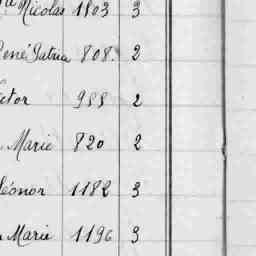 Nicolas 1803 3
René Patria 808. 2
ictor 988 2
Marie 820 2
éonor 1182 3
Marie 1196 3